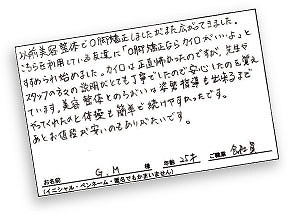 以前美容整体でO脚矯正しましたがまた広がってきました。
こちらを利用している友達に「O脚矯正ならカイロがいいよ」と
すすめられ始めました。カイロは正直怖かったのですが、先生や
スタッフの方々の説明がとても丁寧でしたので安心したのを覚え
ています。美容整体とのちがいは姿勢指導も出来るまで
やってくれたのと体操も簡単で続けやすかったです。
あとお値段が安いのもありがたいです。
お名前 G.M 様 年齢 25才 ご職業 会社員
(イニシャル・ペンネーム・匿名でもかまいません)